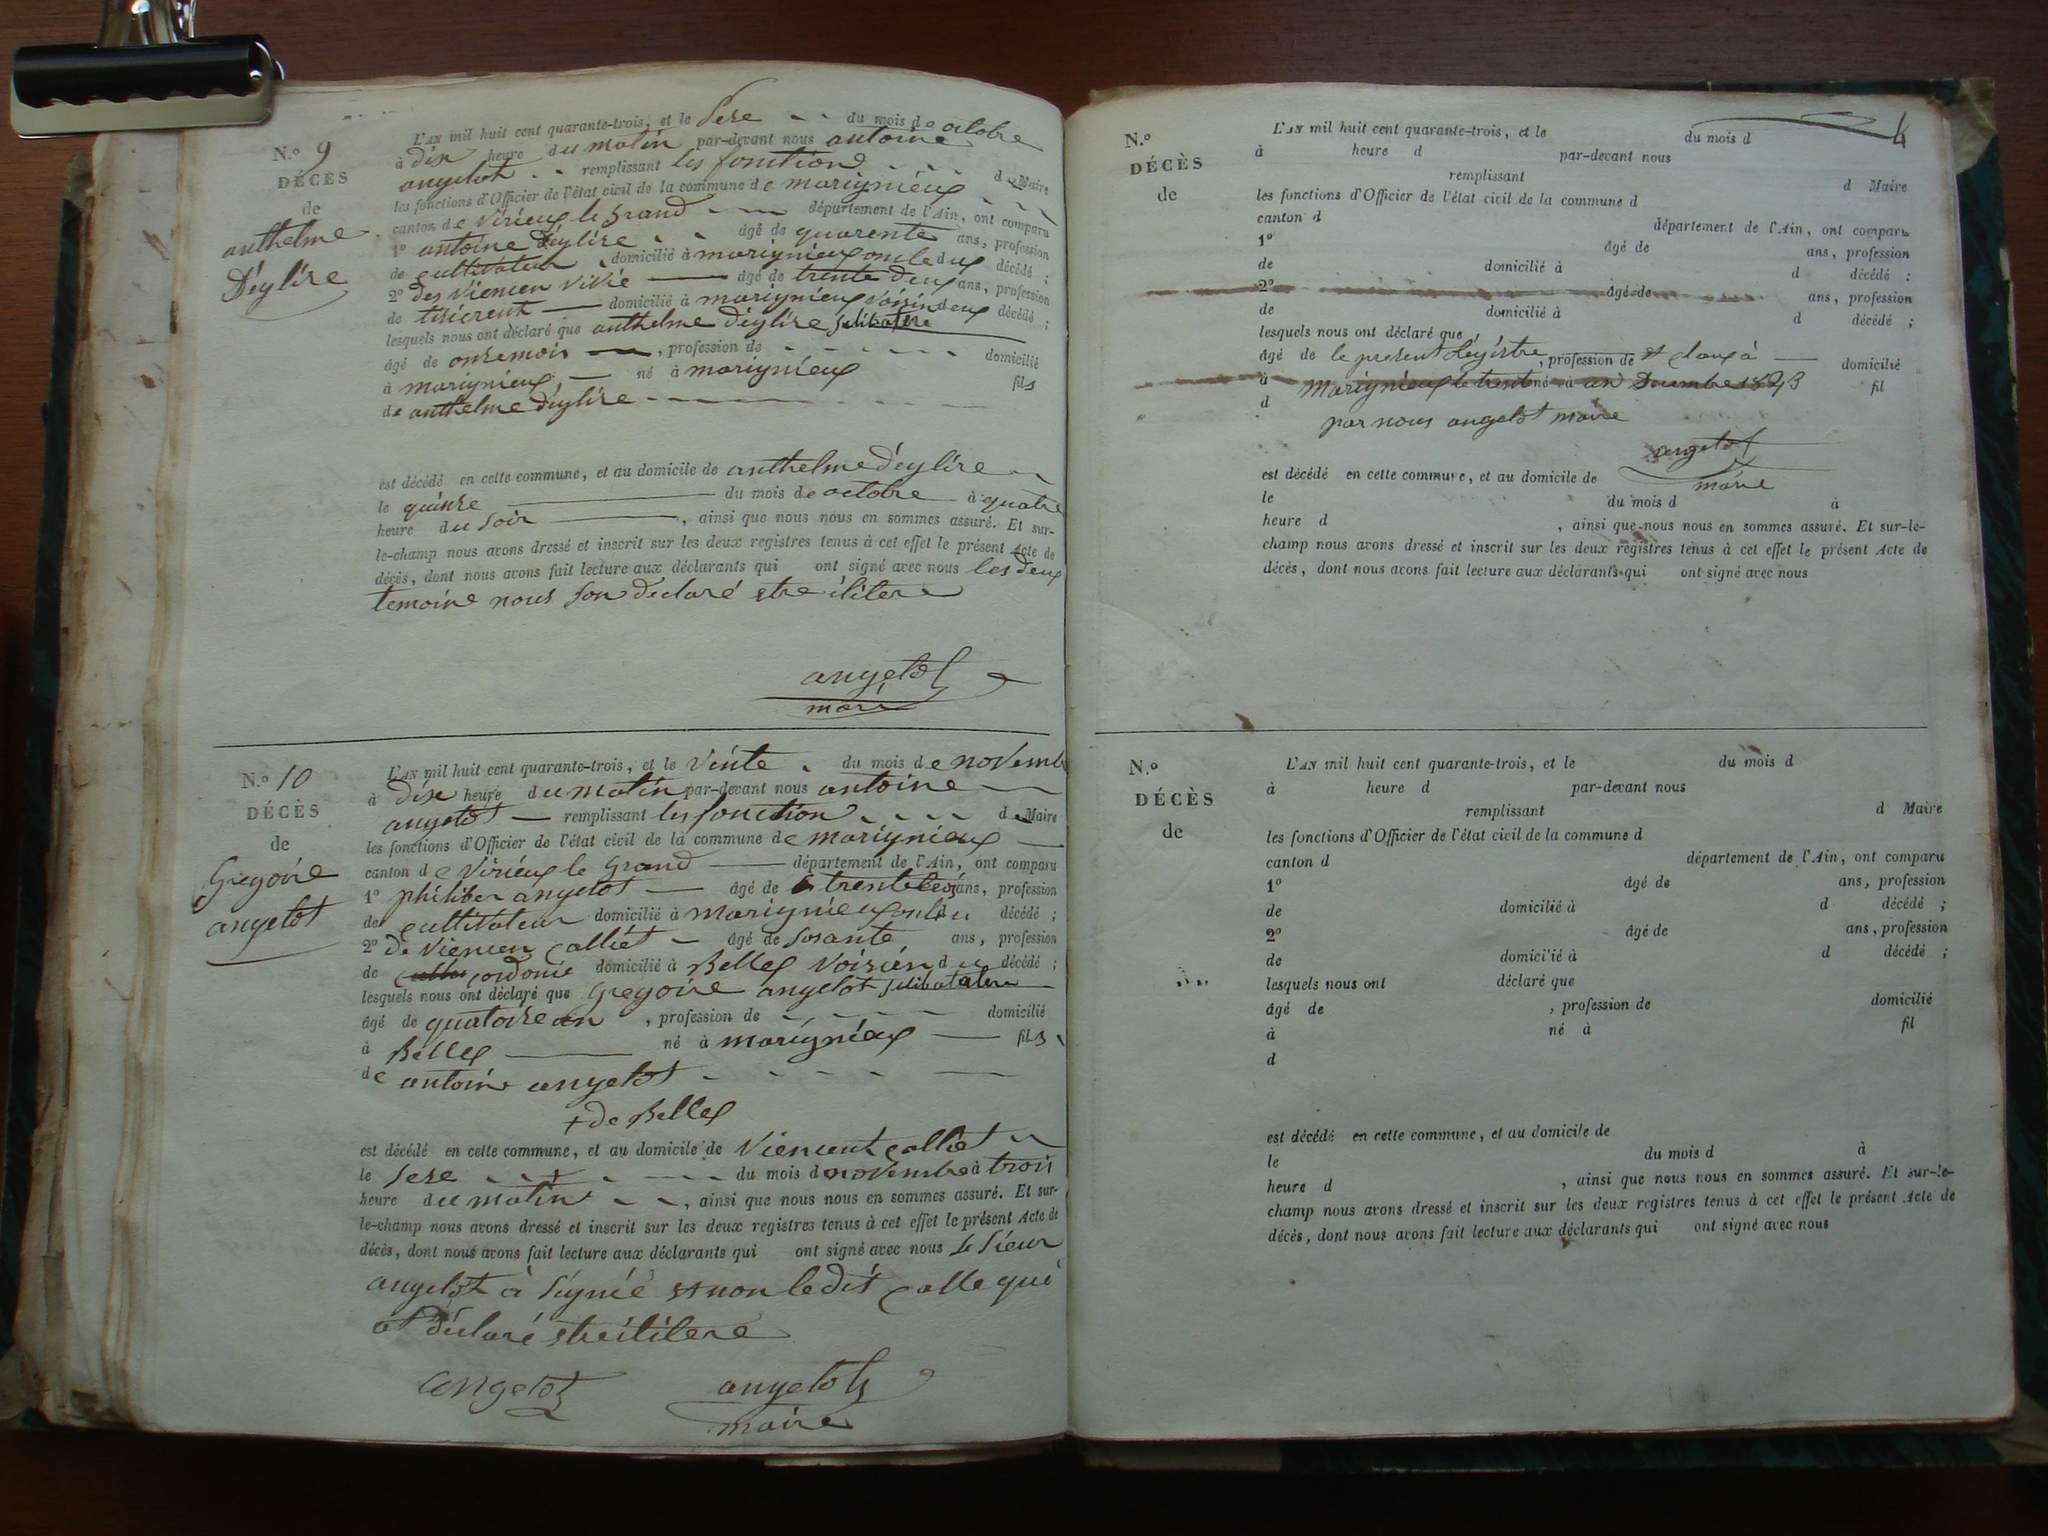 N.º 9
DÉCÈS
de
anthelme
Déglise
L'AN mil huit cent quarante-trois, et le Seze du mois de octobre
à dix heure du matin par-devant nous antoine
angelot remplissant les fonction de Maire
les fonctions d'Officier de l'état civil de la commune de marignieux
canton de Virieux le grand département de l'Ain, ont comparu
1º antoine Déglise âgé de quarente ans, profession
de cultivateur domicilié à marignieux oncle du décédé ;
2º âgé de trente deux ans, profession
de tisserent domicilié à marignieux voisin deux décédé ;
lesquels nous ont déclaré que anthelme déglise selibatere
âgé de onse mois, profession de domicilié
à marignieux né à marignieux fils
de anthelme déglise
est décédé en cette commune, et au domicile de anthelme déglise
le quinse du mois de octobre à quatre
heure du soir, ainsi que nous nous en sommes assuré. Et sur-
le-champ nous avons dressé et inscrit sur les deux registres tenus à cet effet le présent Acte de
décès, dont nous avons fait lecture aux déclarants qui ont signé avec nous les deux
temoine nous son declaré etre élitere
angelot
maire
N.º 10
DÉCÈS
de
Gregoire
angelot
L'AN mil huit cent quarante-trois, et le Vinte du mois de novembre
à dixe heure du matin par-devant nous antoine
angelot remplissant les fonction de Maire
les fonctions d'Officier de l'état civil de la commune de marignieux
canton de Virieux le Grand département de l'Ain, ont comparu
1º philiber angelot âgé de trente ans, profession
de cultivateur domicilié à marignieux du décédé ;
2º de Viencen calliet âgé de sosante ans, profession
de cordonie domicilié à Belley Voisien du décédé ;
lesquels nous ont déclaré que Gregoire angelot selibatatere
âgé de quatorse an, profession de domicilié
à Belley né à marignieux fils
de antoine angelot
+ de Belley
est décédé en cette commune, et au domicile de Viencent calliet
le Seze + du mois d novembre à trois
heure du matin, ainsi que nous nous en sommes assuré. Et sur-
le-champ nous avons dressé et inscrit sur les deux registres tenus à cet effet le présent Acte de
décès, dont nous avons fait lecture aux déclarants qui ont signé avec nous le Sieur
angelot à Signié et non le dit calle qui
at déclaré etre élitere
angelot
angelot
maire
4
N.º
DÉCÈS
de
L'AN mil huit cent quarante-trois, et le du mois d
à heure d par-devant nous
remplissant d Maire
les fonctions d'Officier de l'état civil de la commune d
canton d département de l'Ain, ont comparu
1º âgé de ans, profession
de domicilié à d décédé ;
2º âgé de ans, profession
de domicilié à d décédé ;
lesquels nous ont déclaré que
âgé de le present Registre, profession de et claux à domicilié
à Marignieux le trente né à un Decembre 1843 fil
d par nous angelot maire
angelot
maire
est décédé en cette commune, et au domicile de
le du mois d à
heure d , ainsi que nous nous en sommes assuré. Et sur-le-
champ nous avons dressé et inscrit sur les deux registres tenus à cet effet le présent Acte de
décès, dont nous avons fait lecture aux déclarants qui ont signé avec nous
N.º
DÉCÈS
de
L'AN mil huit cent quarante-trois, et le du mois d
à heure d par-devant nous
remplissant d Maire
les fonctions d'Officier de l'état civil de la commune d
canton d département de l'Ain, ont comparu
1º âgé de ans, profession
de domicilié à d décédé ;
2º âgé de ans, profession
de domicilié à d décédé ;
lesquels nous ont déclaré que
âgé de , profession de domicilié
à né à fil
d
est décédé en cette commune, et au domicile de
le du mois d à
heure d , ainsi que nous nous en sommes assuré. Et sur-le-
champ nous avons dressé et inscrit sur les deux registres tenus à cet effet le présent Acte de
décès, dont nous avons fait lecture aux déclarants qui ont signé avec nous